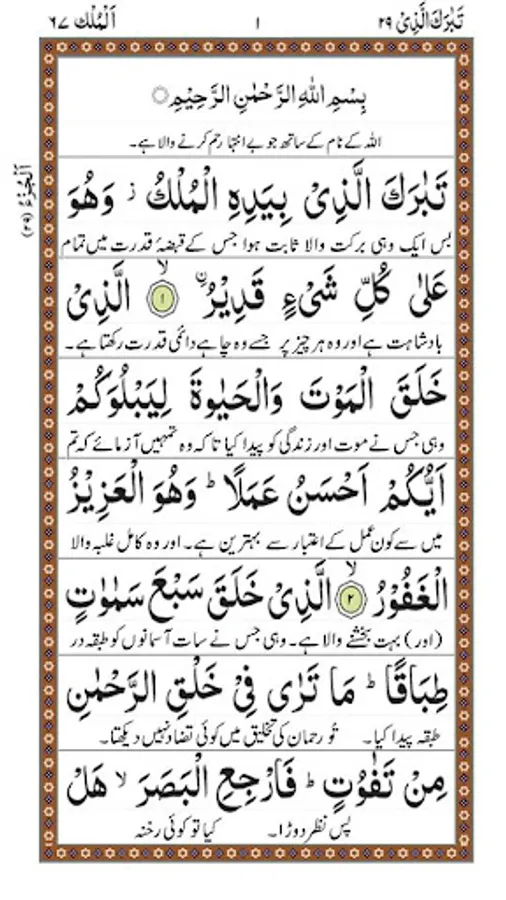 تَبٰرَكَ الَّذِیْ ۲۹ ۱ اَلْمُلْك ۶۷
اَلْجُزْءُ (۲۹)
بِسْمِ اللهِ الرَّحْمٰنِ الرَّحِیْمِ ۝
اللہ کے نام کے ساتھ جو بے انتہا رحم کرنے والا ہے۔
تَبٰرَكَ الَّذِیْ بِیَدِهِ الْمُلْكُ ز وَهُوَ
بس ایک وہی برکت والا ثابت ہوا جس کے قبضۂ قدرت میں تمام
عَلٰی كُلِّ شَیْءٍ قَدِیْرُ ۙ ن ۝۱ الَّذِیْ
بادشاہت ہے اور وہ ہر چیز پر جسے وہ چاہے دائمی قدرت رکھتا ہے۔
خَلَقَ الْمَوْتَ وَالْحَیٰوةَ لِیَبْلُوَكُمْ
وہی جس نے موت اور زندگی کو پیدا کیا تاکہ وہ تمہیں آزمائے کہ تم
اَیُّكُمْ اَحْسَنُ عَمَلًا ؕ وَهُوَ الْعَزِیْزُ
میں سے کون عمل کے اعتبار سے بہترین ہے۔ اور وہ کامل غلبہ والا
الْغَفُوْرُ ۙ ۝۲ الَّذِیْ خَلَقَ سَبْعَ سَمٰوٰتٍ
(اور) بہت بخشنے والا ہے۔ وہی جس نے سات آسمانوں کو طبقہ در
طِبَاقًا ؕ مَا تَرٰی فِیْ خَلْقِ الرَّحْمٰنِ
طبقہ پیدا کیا۔ تُو رحمان کی تخلیق میں کوئی تضاد نہیں دیکھتا۔
مِنْ تَفٰوُتٍ ؕ فَارْجِعِ الْبَصَرَ ۙ هَلْ
پس نظر دوڑا۔ کیا تو کوئی رخنہ